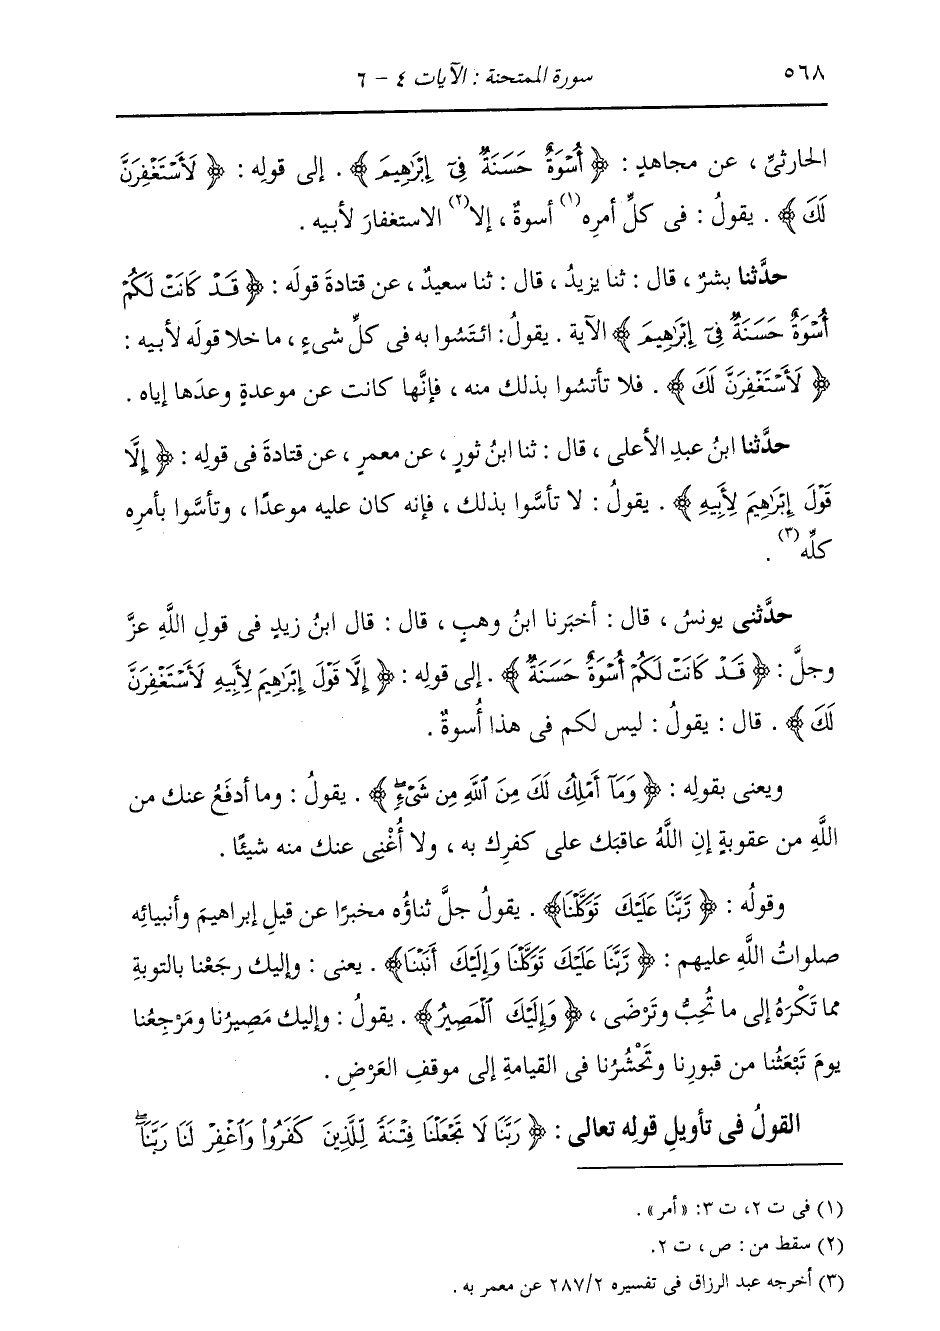 ٥٦٨
سورة الممتحنة : الآيات ٤ - ٦
الحارثيِّ ، عن مجاهدٍ : ﴿ أُسْوَةٌ حَسَنَةٌ فِىٓ إِبْرَٰهِيمَ ﴾ . إلى قولِه : ﴿ لَأَسْتَغْفِرَنَّ
لَكَ ﴾ . يقولُ : فى كلِّ أمرِه(١) أسوةٌ ، إلا(٢) الاستغفارَ لأبيه .
حدَّثنا بشرٌ ، قال : ثنا يزيدُ ، قال : ثنا سعيدٌ ، عن قتادةَ قولَه : ﴿ قَدْ كَانَتْ لَكُمْ
أُسْوَةٌ حَسَنَةٌ فِىٓ إِبْرَٰهِيمَ ﴾ الآية . يقولُ : ائتَسُوا به فى كلِّ شىءٍ ، ما خلا قولَه لأبيه :
﴿ لَأَسْتَغْفِرَنَّ لَكَ ﴾ . فلا تأتسُوا بذلك منه ، فإنَّها كانت عن موعدةٍ وعدَها إياه .
حدَّثنا ابنُ عبدِ الأعلى ، قال : ثنا ابنُ ثورٍ ، عن معمرٍ ، عن قتادةَ فى قولِه : ﴿ إِلَّا
قَوْلَ إِبْرَٰهِيمَ لِأَبِيهِ ﴾ . يقولُ : لا تأسَّوا بذلك ، فإنه كان عليه موعدًا ، وتأسَّوا بأمرِه
كلِّه(٣) .
حدَّثنى يونسُ ، قال : أخبَرنا ابنُ وهبٍ ، قال : قال ابنُ زيدٍ فى قولِ اللَّهِ عزَّ
وجلَّ : ﴿ قَدْ كَانَتْ لَكُمْ أُسْوَةٌ حَسَنَةٌ ﴾ . إلى قولِه : ﴿ إِلَّا قَوْلَ إِبْرَٰهِيمَ لِأَبِيهِ لَأَسْتَغْفِرَنَّ
لَكَ ﴾ . قال : يقولُ : ليس لكم فى هذا أُسوةٌ .
ويعنى بقولِه : ﴿ وَمَآ أَمْلِكُ لَكَ مِنَ ٱللَّهِ مِن شَىْءٍۖ ﴾ . يقولُ : وما أدفَعُ عنك من
اللَّهِ من عقوبةٍ إنِ اللَّهُ عاقبَك على كفرِك به ، ولا أُغْنِى عنك منه شيئًا .
وقولُه : ﴿ رَّبَّنَا عَلَيْكَ تَوَكَّلْنَا﴾ . يقولُ جلَّ ثناؤُه مخبرًا عن قيلِ إبراهيمَ وأنبيائِه
صلواتُ اللَّهِ عليهم : ﴿ رَّبَّنَا عَلَيْكَ تَوَكَّلْنَا وَإِلَيْكَ أَنَبْنَا﴾ . يعنى : وإليك رجَعْنا بالتوبةِ
مما تَكْرَهُ إلى ما تُحِبُّ وتَرْضَى ، ﴿ وَإِلَيْكَ ٱلْمَصِيرُ ﴾ . يقولُ : وإليك مَصِيرُنا ومَرْجِعُنا
يومَ تَبْعَثُنا من قبورِنا وتَحْشُرُنا فى القيامةِ إلى موقفِ العَرْضِ .
القولُ فى تأويلِ قولِه تعالى : ﴿ رَبَّنَا لَا تَجْعَلْنَا فِتْنَةً لِّلَّذِينَ كَفَرُوا۟ وَٱغْفِرْ لَنَا رَبَّنَآۖ
(١) فى ت ٢، ت ٣: «أمر» .
(٢) سقط من : ص ، ت ٢.
(٣) أخرجه عبد الرزاق فى تفسيره ٢٨٧/٢ عن معمر به .